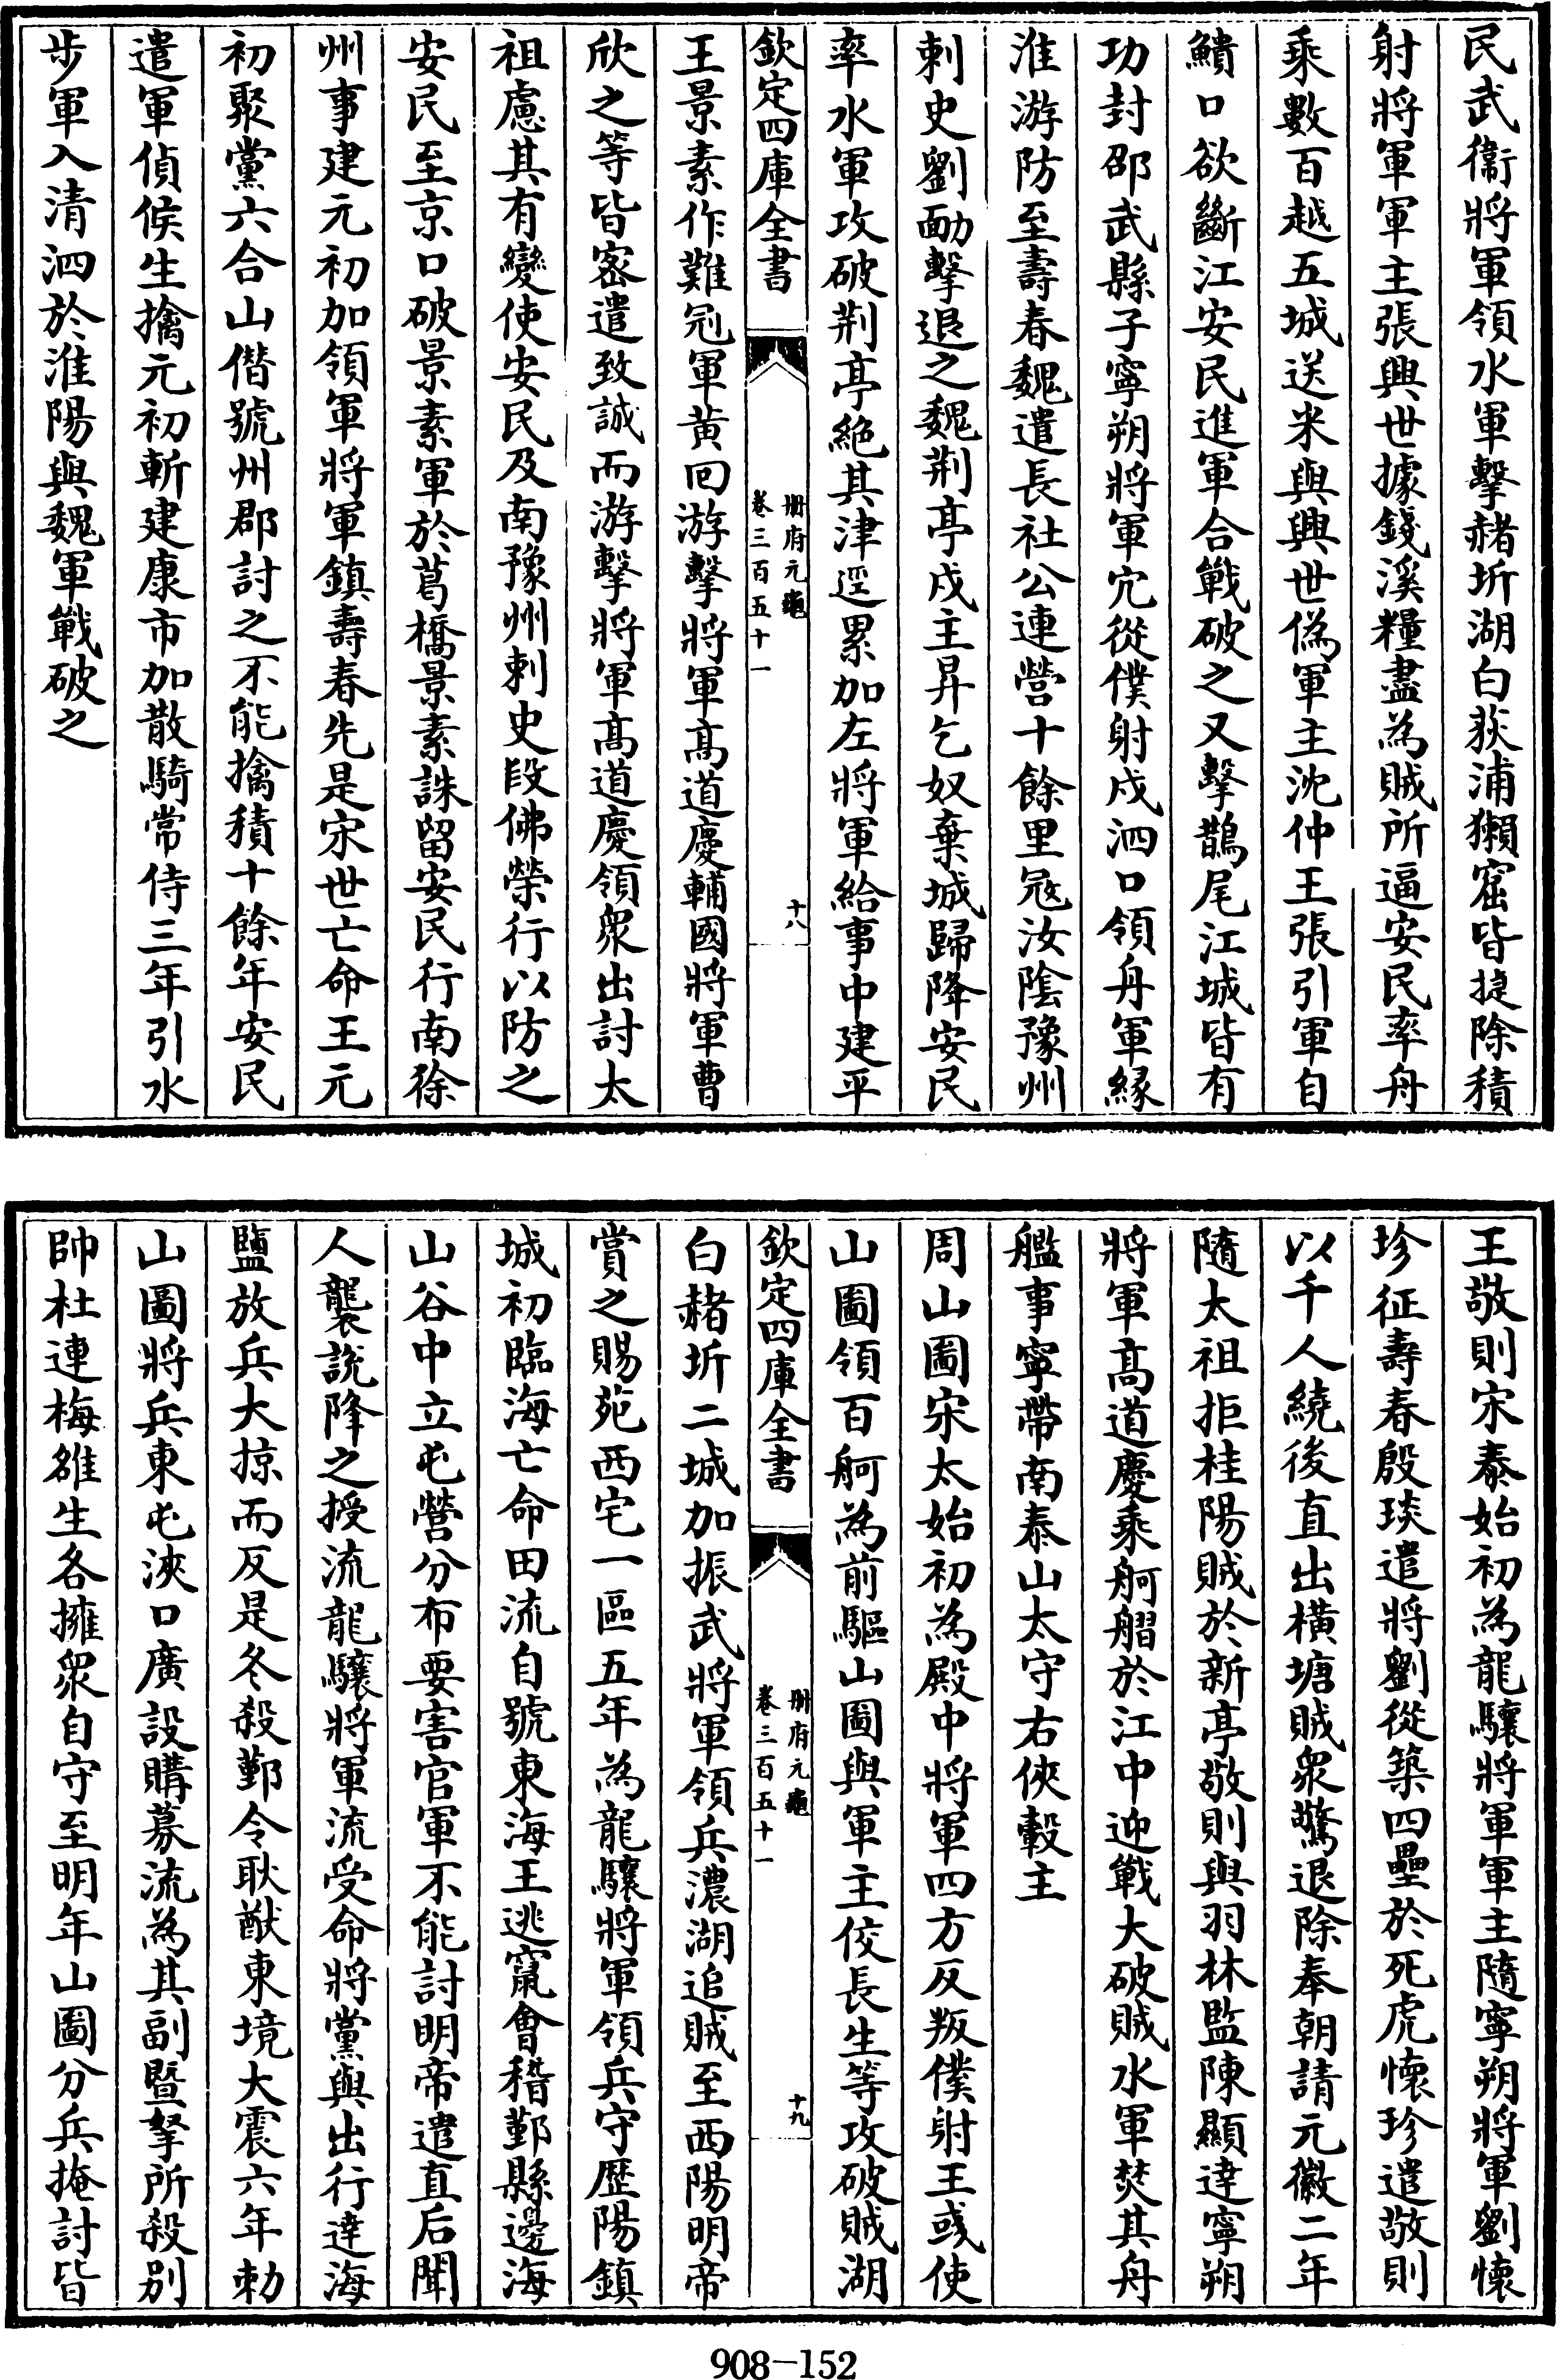 民武衞將軍領水軍擊赭圻湖白荻浦獺窟皆㨗除積
射將軍軍主張興世據錢溪糧盡為賊所逼安民率舟
乘數百越五城送米與興世偽軍主沈仲王張引軍自
鱝口欲斷江安民進軍合戰破之又擊鵲尾江城皆有
功封邵武縣子寧朔將軍冗從僕射戍泗口領舟軍緣
淮游防至壽春魏遣長社公連營十餘里冦汝隂豫州
刺史劉勔擊退之魏荆亭戍主昇乞奴棄城歸降安民
率水軍攻破荆亭絶其津逕累加左將軍給事中建平
欽定四庫全書
册府元龜
卷三百五十一
十八
王景素作難冠軍黄回游擊將軍髙道慶輔國將軍曹
欣之等皆宻遣致誠而游擊將軍髙道慶領衆出討太
祖慮其有變使安民及南豫州刺史段佛榮行以防之
安民至京口破景素軍於葛橋景素誅留安民行南徐
州事建元初加領軍將軍鎮壽春先是宋世亡命王元
初聚黨六合山僭號州郡討之不能擒積十餘年安民
遣軍偵候生擒元初斬建康市加散騎常侍三年引水
步軍入清泗於淮陽與魏軍戰破之
王敬則宋泰始初為龍驤將軍軍主隨寧朔將軍劉懷
珍征壽春殷琰遣將劉從築四壘於死虎懷珍遣敬則
以千人繞後直出橫塘賊衆驚退除奉朝請元徽二年
隨太祖拒桂陽賊於新亭敬則與羽林監陳顯達寧朔
將軍髙道慶乘舸艒於江中迎戰大破賊水軍焚其舟
艦事寧帶南泰山太守右俠轂主
周山圖宋太始初為殿中將軍四方反叛僕射王彧使
山圖領百舸為前驅山圖與軍主佼長生等攻破賊湖
欽定四庫全書
册府元龜
卷三百五十一
十九
白赭圻二城加振武將軍領兵濃湖追賊至西陽明帝
賞之賜苑西宅一區五年為龍驤將軍領兵守歴陽鎮
城初臨海亡命田流自號東海王逃竄會稽鄞縣邊海
山谷中立屯營分布要害官軍不能討明帝遣直后聞
人襲說降之授流龍驤將軍流受命將黨與出行達海
鹽放兵大掠而反是冬殺鄞令耿猷東境大震六年勅
山圖將兵東屯浹口廣設購募流為其副暨挐所殺别
帥杜連梅雒生各擁衆自守至明年山圖分兵掩討皆
908-152